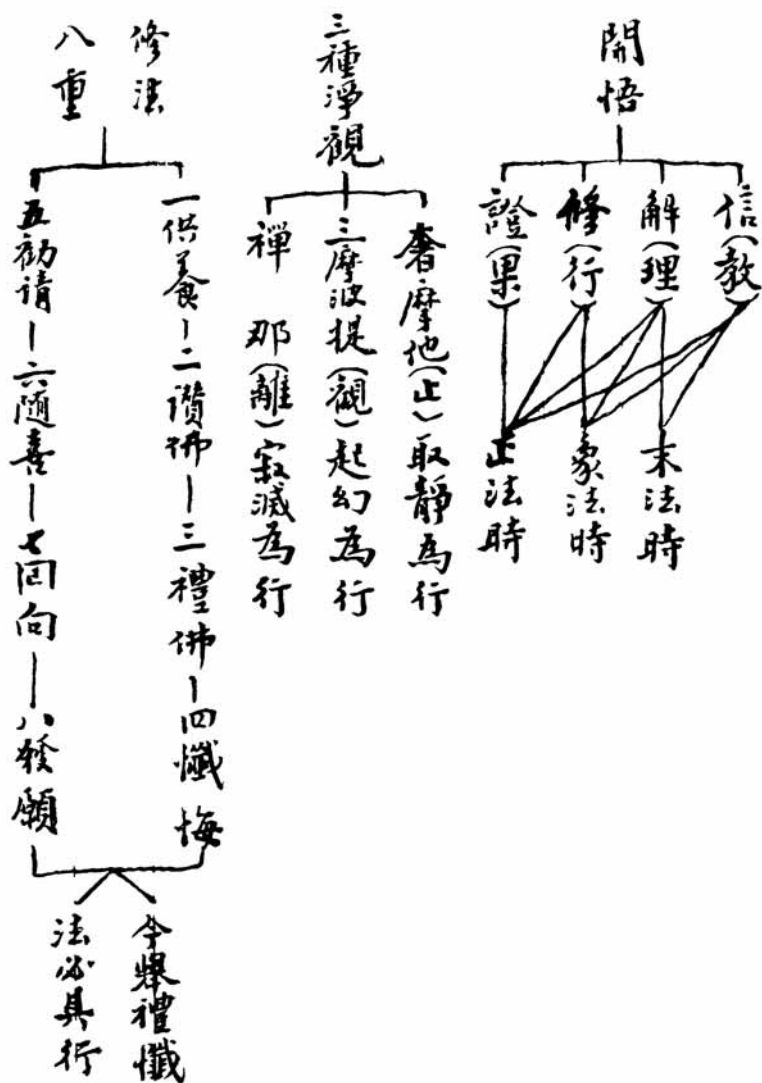 開悟
信(教)
解(理)
修(行)
證(果)
末法時
象法時
正法時
三種淨觀
奢摩他(止)取靜為行
三摩波提(觀)起幻為行
禪那(離)寂滅為行
修法
八重
一供養-二讚佛-三禮佛-四懺悔
五勸請-六隨喜-七回向-八發願
今舉禮懺
法必具行